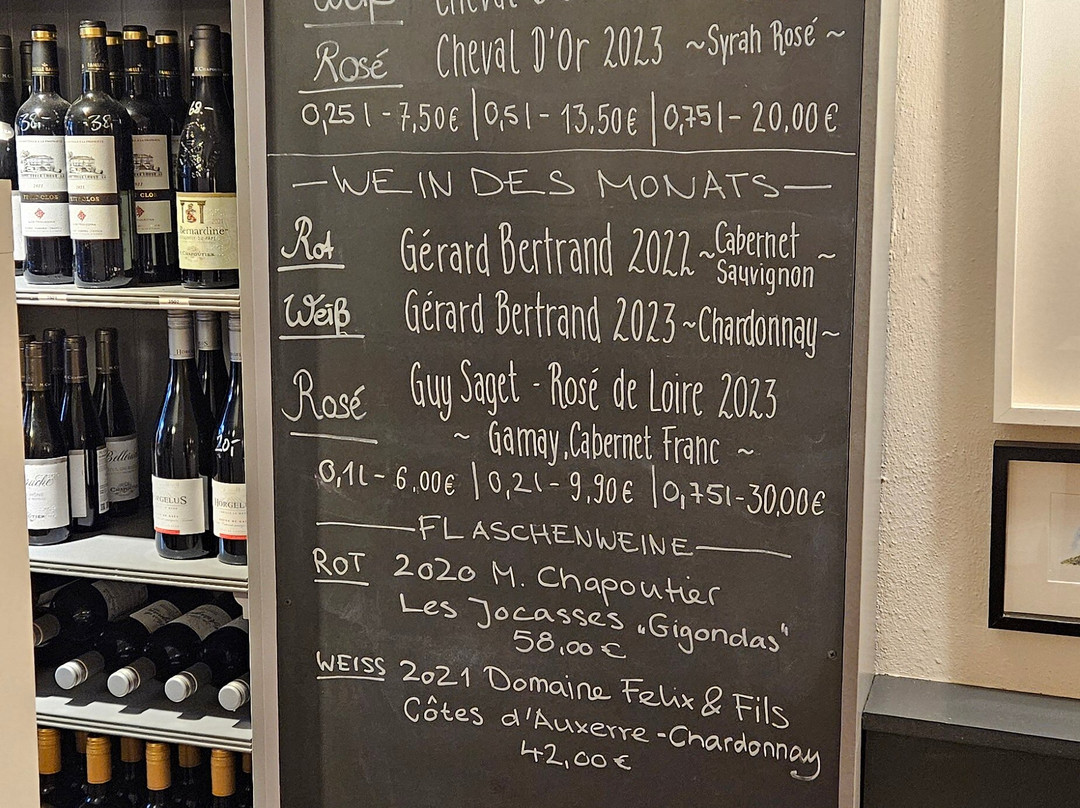 Weiß Cheval D'O
Rosé Cheval D'Or 2023 ~Syrah Rosé~
0,25l - 7,50€ | 0,5l - 13,50€ | 0,75l - 20,00€
—WEIN DES MONATS—
Rot Gérard Bertrand 2022 ~Cabernet Sauvignon~
Weiß Gérard Bertrand 2023 ~Chardonnay~
Rosé Guy Saget - Rosé de Loire 2023
~ Gamay, Cabernet Franc ~
0,1l - 6,00€ | 0,2l - 9,90€ | 0,75l - 30,00€
—FLASCHENWEINE—
ROT 2020 M. Chapoutier
Les Jocasses „Gigondas"
58,00€
WEISS 2021 Domaine Felix & Fils
Côtes d'Auxerre - Chardonnay
42,00€
38,-
38,-
68.-
CLOS
Bernardine
20,-